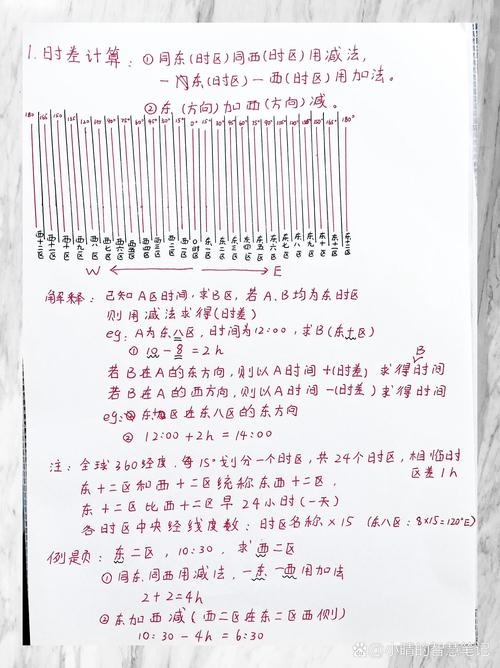 1. 时差计算：①同东(时区)同西(时区)用减法，
一东(时区)一西(时区)用加法。
②东(方向)加西(方向)减。
180° 165° 150° 135° 120° 105° 90° 75° 60° 45° 30° 15° 0° 15° 30° 45° 60° 75° 90° 105° 120° 135° 150° 165° 180°
西十二区 西十一区 西十区 西九区 西八区 西七区 西六区 西五区 西四区 西三区 西二区 西一区 0时区 东一区 东二区 东三区 东四区 东五区 东六区 东七区 东八区 东九区 东十区 东十一区 东十二区
W E
解释：已知A区时间，求B区，若A、B均为东时区
则用减法求得(时差)
eg：A为东八区，时间为12:00，求B(东十区)
① 10-8=2h
若B在A的东方向，则以A时间+(时差)求得B时间
若B在A的西方向，则以A时间-(时差)求得时间
eg：东十区在东八区的东方向
② 12:00+2h=14:00
注：全球360经度，每15°划分一个时区，共24个时区，相临时
区差1h
东十二区和西十二区统称东西十二区，
东十二区比西十二区早24小时(一天)
各时区中央经线度数：时区名称×15 (东八区：8×15=120°E)
例题：东二区，10:30，求西二区
①同东同西用减法，一东一西用加法
2+2=4h
②东加西减(西二区在东二区西侧)
10:30-4h=6:30
小晴的智慧笔记